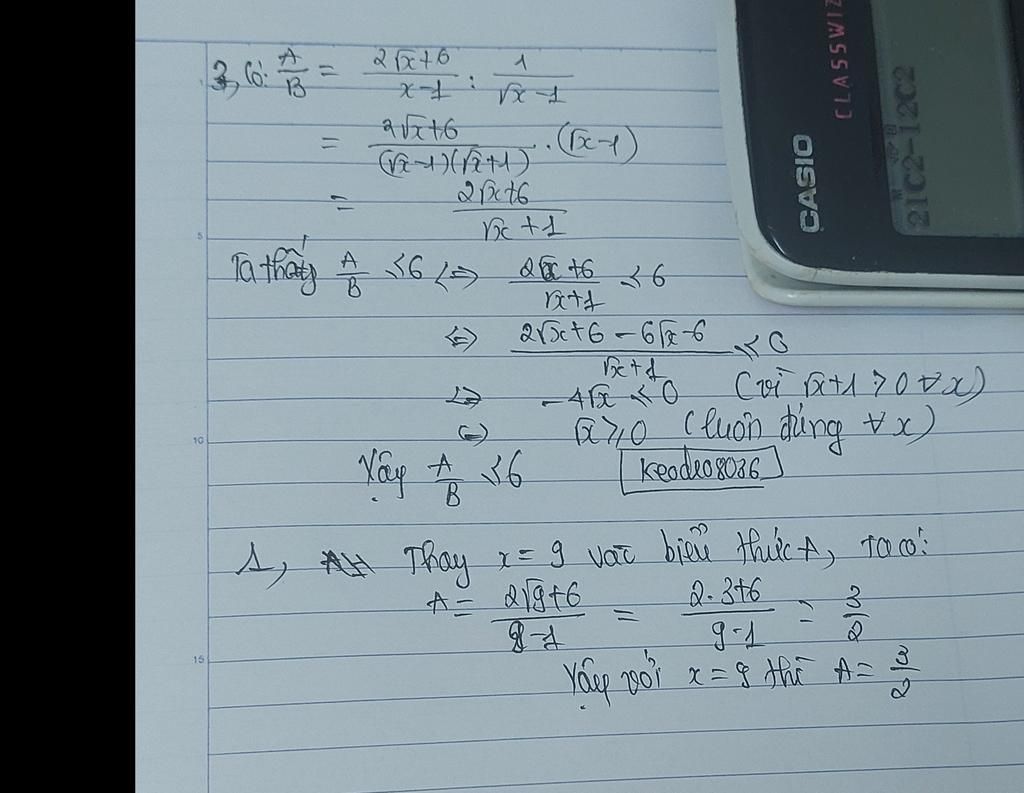 3, Có: A/B = (2√x+6)/(x-1) : 1/(√x-1)
= (2√x+6)/((√x-1)(√x+1)) · (√x-1)
= (2√x+6)/(√x+1)
Ta thấy A/B ≤ 6 <=> (2√x+6)/(√x+1) ≤ 6
<=> (2√x+6-6√x-6)/(√x+1) ≤ 0
<=> -4√x ≤ 0 (vì √x+1 > 0 ∀x)
<=> √x ≥ 0 (luôn đúng ∀x)
Vậy A/B ≤ 6
Keodeo8036
1, Thay x = 9 vào biểu thức A, ta có:
A = (2√9+6)/(9-1) = (2·3+6)/(9-1) = 3/2
Vậy với x = 9 thì A = 3/2
CASIO
CLASSWIZ
21C2-12C2
5
10
15